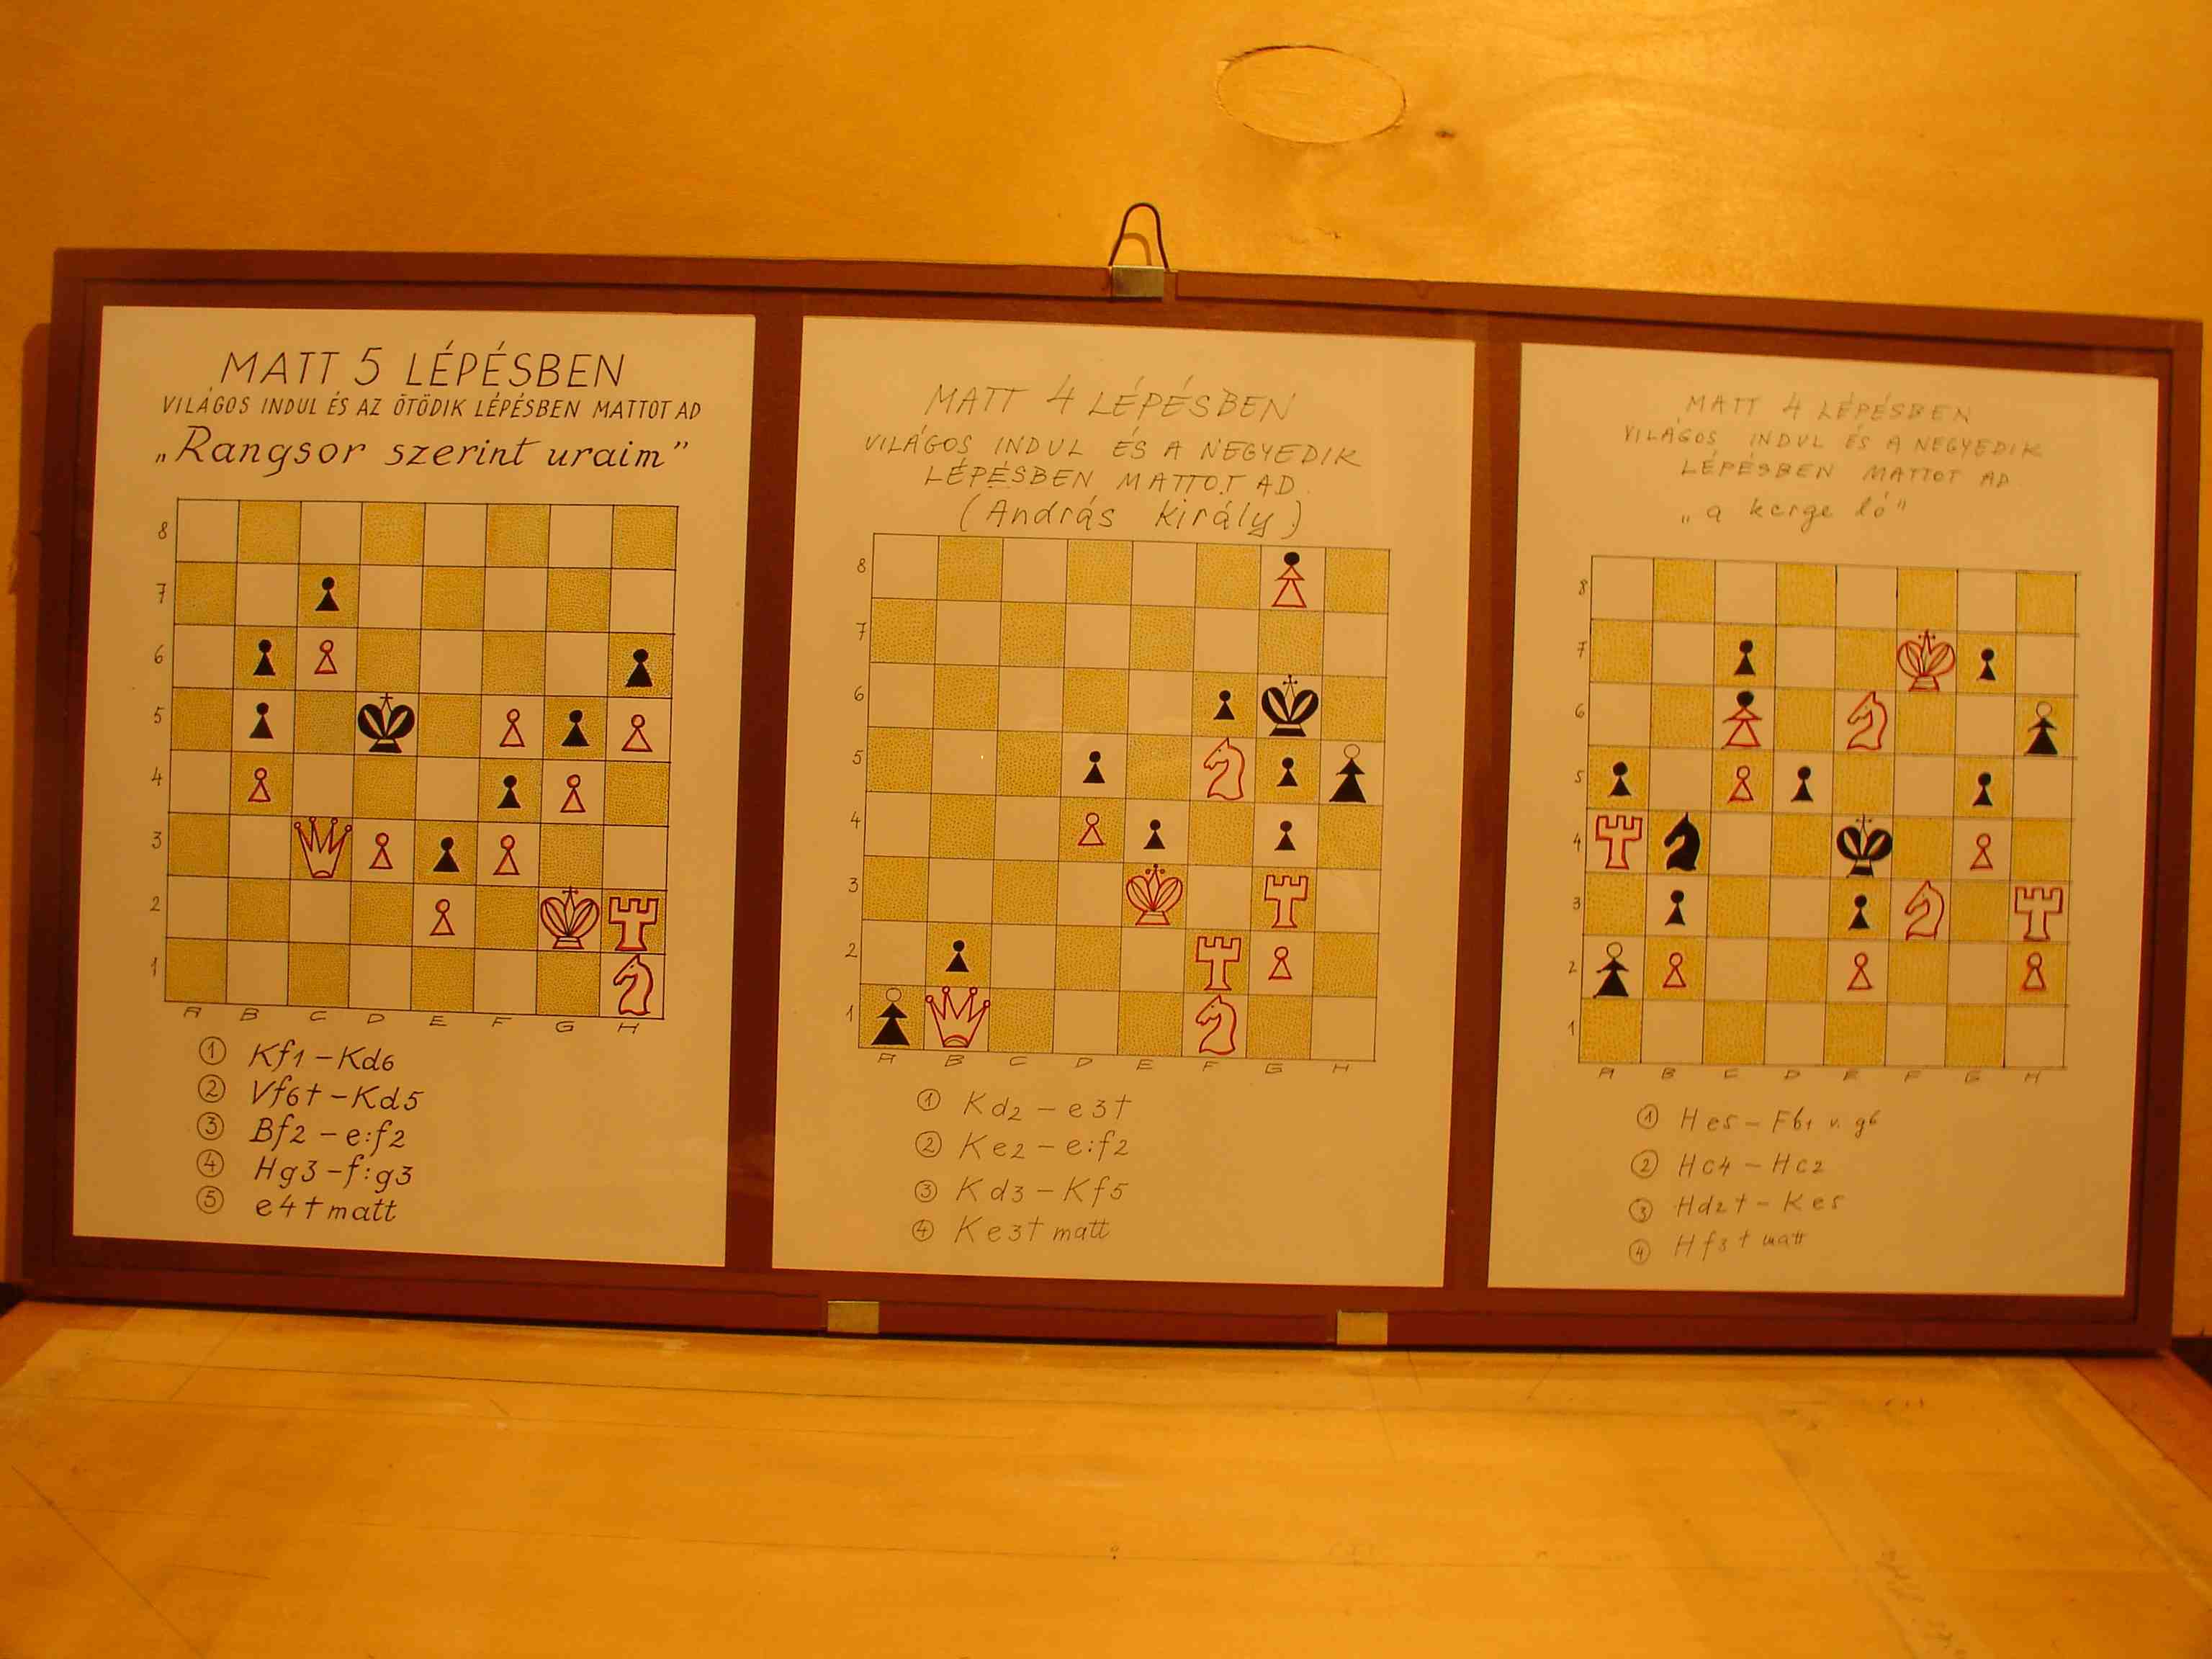 MATT 5 LÉPÉSBEN
VILÁGOS INDUL ÉS AZ ÖTÖDIK LÉPÉSBEN MATTOT AD
„Rangsor szerint uraim”
8
7
6
5
4
3
2
1
A B C D E F G H
① Kf1 – Kd6
② Vf6† – Kd5
③ Bf2 – e:f2
④ Hg3 – f:g3
⑤ e4† matt
MATT 4 LÉPÉSBEN
VILÁGOS INDUL ÉS A NEGYEDIK
LÉPÉSBEN MATTOT AD.
(András király)
8
7
6
5
4
3
2
1
A B C D E F G H
① Kd2 – e3†
② Ke2 – e:f2
③ Kd3 – Kf5
④ Ke3† matt
MATT 4 LÉPÉSBEN
VILÁGOS INDUL ÉS A NEGYEDIK
LÉPÉSBEN MATTOT AD
„a kerge ló”
8
7
6
5
4
3
2
1
A B C D E F G H
① He5 – Fb1 v. g6
② Hc4 – Hc2
③ Hd2† – Ke5
④ Hf3† matt